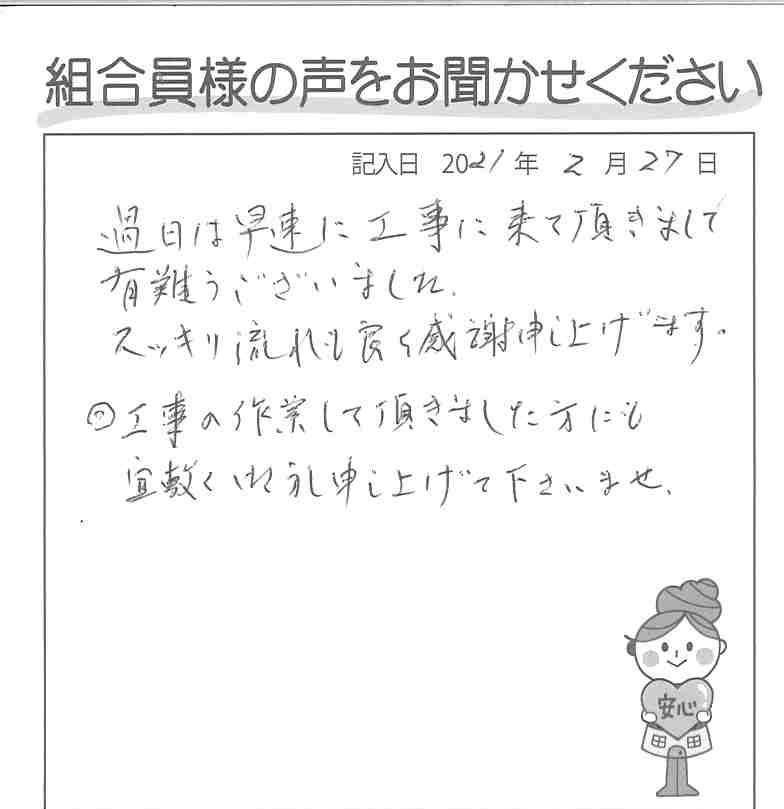 組合員様の声をお聞かせください
記入日 2021年 2月27日
過日は早速に工事に来て頂きまして
有難うございました.
スッキリ流れも良く感謝申し上げます。
◎工事の作業して頂きました方にも
宜敷く御礼申し上げて下さいませ.
安心